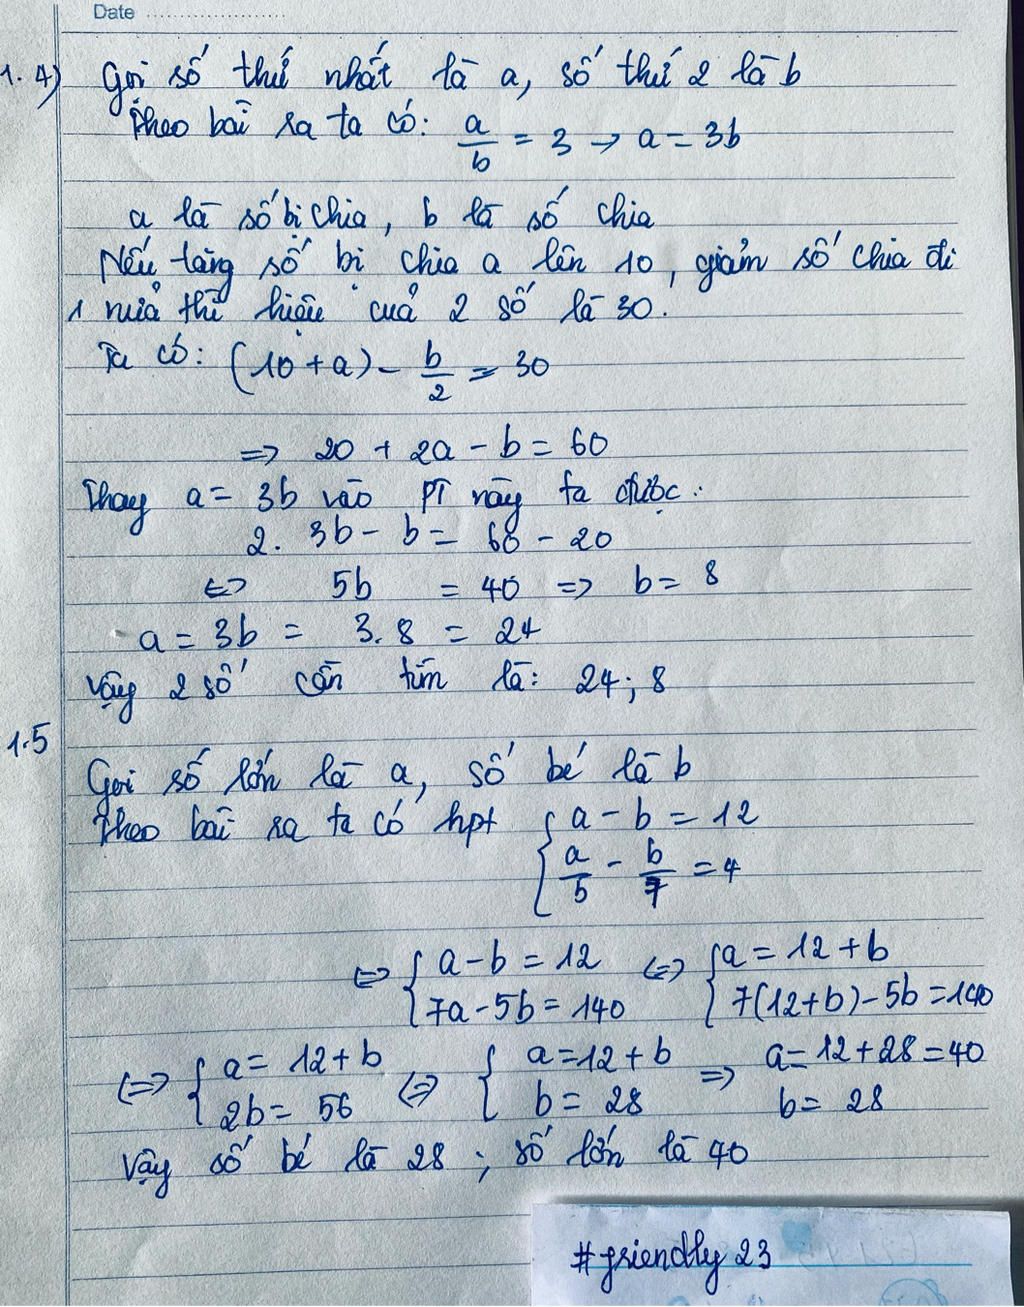 Date ........................
1.4) Gọi số thứ nhất là a, số thứ 2 là b
Theo bài ra ta có: a/b = 3 → a = 3b
a là số bị chia, b là số chia
Nếu tăng số bị chia a lên 10, giảm số chia đi
1 nửa thì hiệu của 2 số là 30.
Ta có: (10 + a) - b/2 = 30
=> 20 + 2a - b = 60
Thay a = 3b vào PT này ta được:
2. 3b - b = 60 - 20
<=> 5b = 40 => b = 8
a = 3b = 3.8 = 24
Vậy 2 số cần tìm là: 24; 8
1.5
Gọi số lớn là a, số bé là b
Theo bài ra ta có hpt { a - b = 12
a/5 - b/7 = 4
<=> { a - b = 12 <=> { a = 12 + b
7a - 5b = 140 7(12+b) - 5b = 140
<=> { a = 12 + b <=> { a = 12 + b => a = 12 + 28 = 40
2b = 56 b = 28 b = 28
Vậy số bé là 28 ; số lớn là 40
#friendly 23